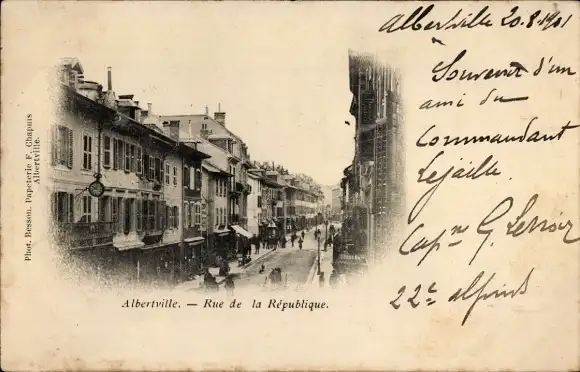 Albertville 20.8.1901
Souvenir d'un
ami du
Commandant
Lejaille.
Cap^ne G. Leroir
22^e alpins
Phot. Besson. Papeterie F. Chapuis
Albertville.
Albertville. — Rue de la République.